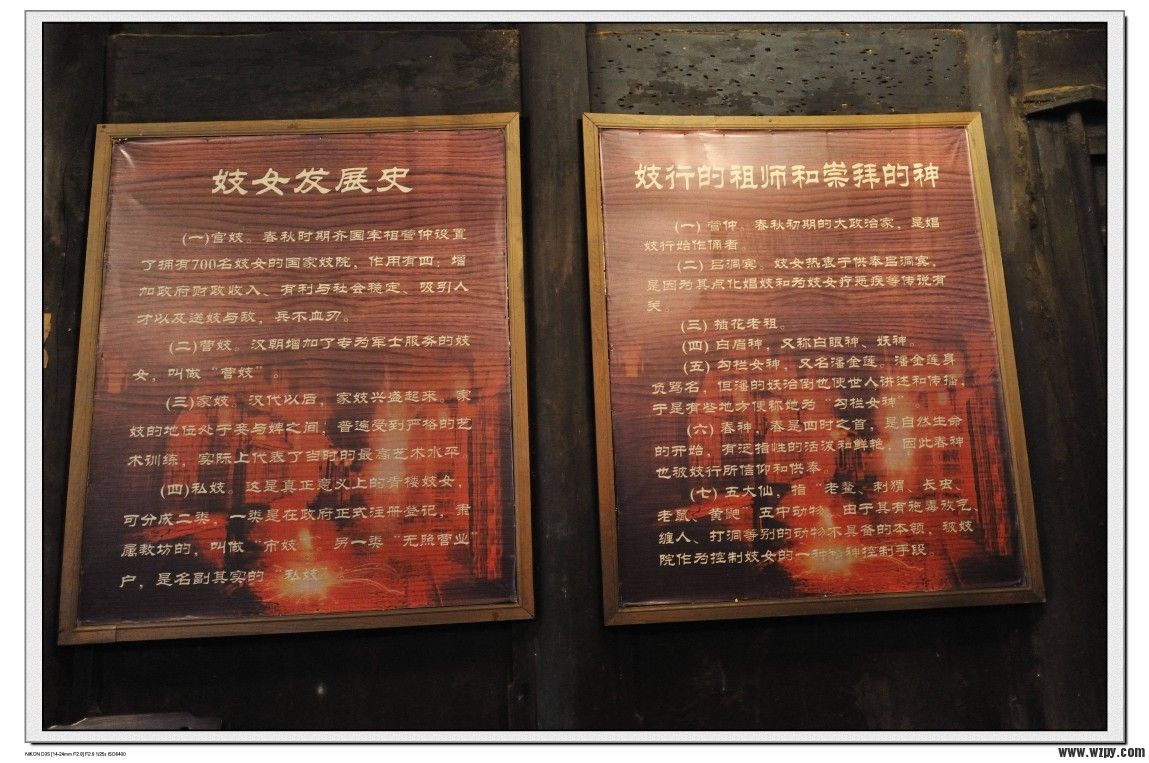 妓女发展史
(一)官妓。春秋时期齐国宰相管仲设置
了拥有700名妓女的国家妓院，作用有四：增
加政府财政收入、有利与社会稳定、吸引人
才以及送妓与敌，兵不血刃。
(二)营妓。汉朝增加了专为军士服务的妓
女，叫做“营妓”。
(三)家妓。汉代以后，家妓兴盛起来。家
妓的地位处于妾与婢之间；普遍受到严格的艺
术训练，实际上代表了当时的最高艺术水平。
(四)私妓。这是真正意义上的青楼妓女，
可分成二类，一类是在政府正式注册登记，隶
属教坊的，叫做“市妓”。另一类“无照营业”
户，是名副其实的“私妓”
妓行的祖师和崇拜的神
(一) 管仲。春秋初期的大政治家，是娼
妓行始作俑者。
(二) 吕洞宾。妓女热衷于供奉吕洞宾，
是因为其点化娼妓和为妓女疗疮疾等传说有
关。
(三) 插花老祖。
(四) 白眉神，又称白眼神、妖神。
(五) 勾栏女神，又名潘金莲。潘金莲身
负骂名，但潘的妖冶倒也使世人讲述和传播，
于是有些地方便称她为“勾栏女神”
(六) 春神，春是四时之首，是自然生命
的开始，有泛指性的活泼和鲜艳，因此春神
也被妓行所信仰和供奉。
(七) 五大仙，指“老鳖、刺猬、长虫、
老鼠、黄鼬”五中动物，由于具有施毒放乞、
缠人、打洞等别的动物不具备的本领，被妓
院作为控制妓女的一种精神控制手段。
NIKON D3S [14-24mm F2.8] F2.8 1/25s ISO6400
www.wzpy.com